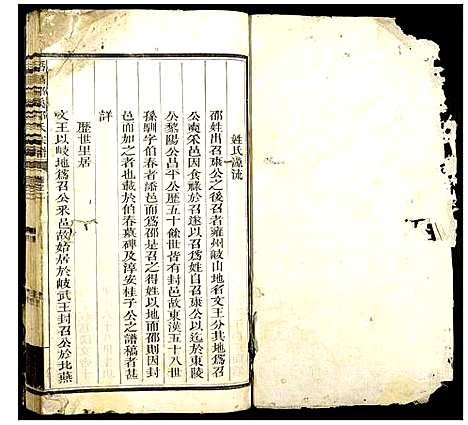 姓氏源流
邵姓出召康公之後召者雍州岐山地名文王分其地為召
公奭采邑因食祿於召遂以召為姓自召康公以迄至東陵
公黎陽公昌平公歷五十餘世皆有封邑故東漢五十八世
孫馴字伯春者添邑而為邵是召之得姓以地而邵則因封
邑而加之者也載於伯春墓碑及淳安桂子公之譜稿者甚
詳
歷世里居
文王以岐地為召公采邑故始居於岐武王封召公於北燕